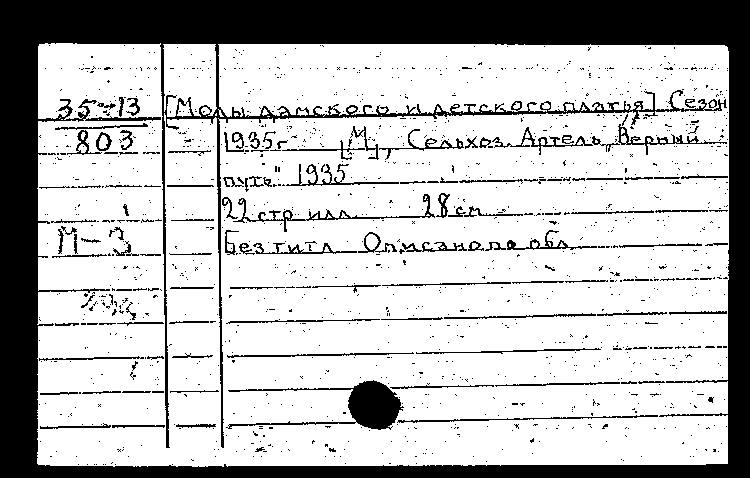 35-13 [Моды дамского и детского платья] Сезон
803 1935г. [М], Сельхоз. Артель „Верный
путь" 1935
22 стр илл. 28 см
М-3 Без титл Описано по обл